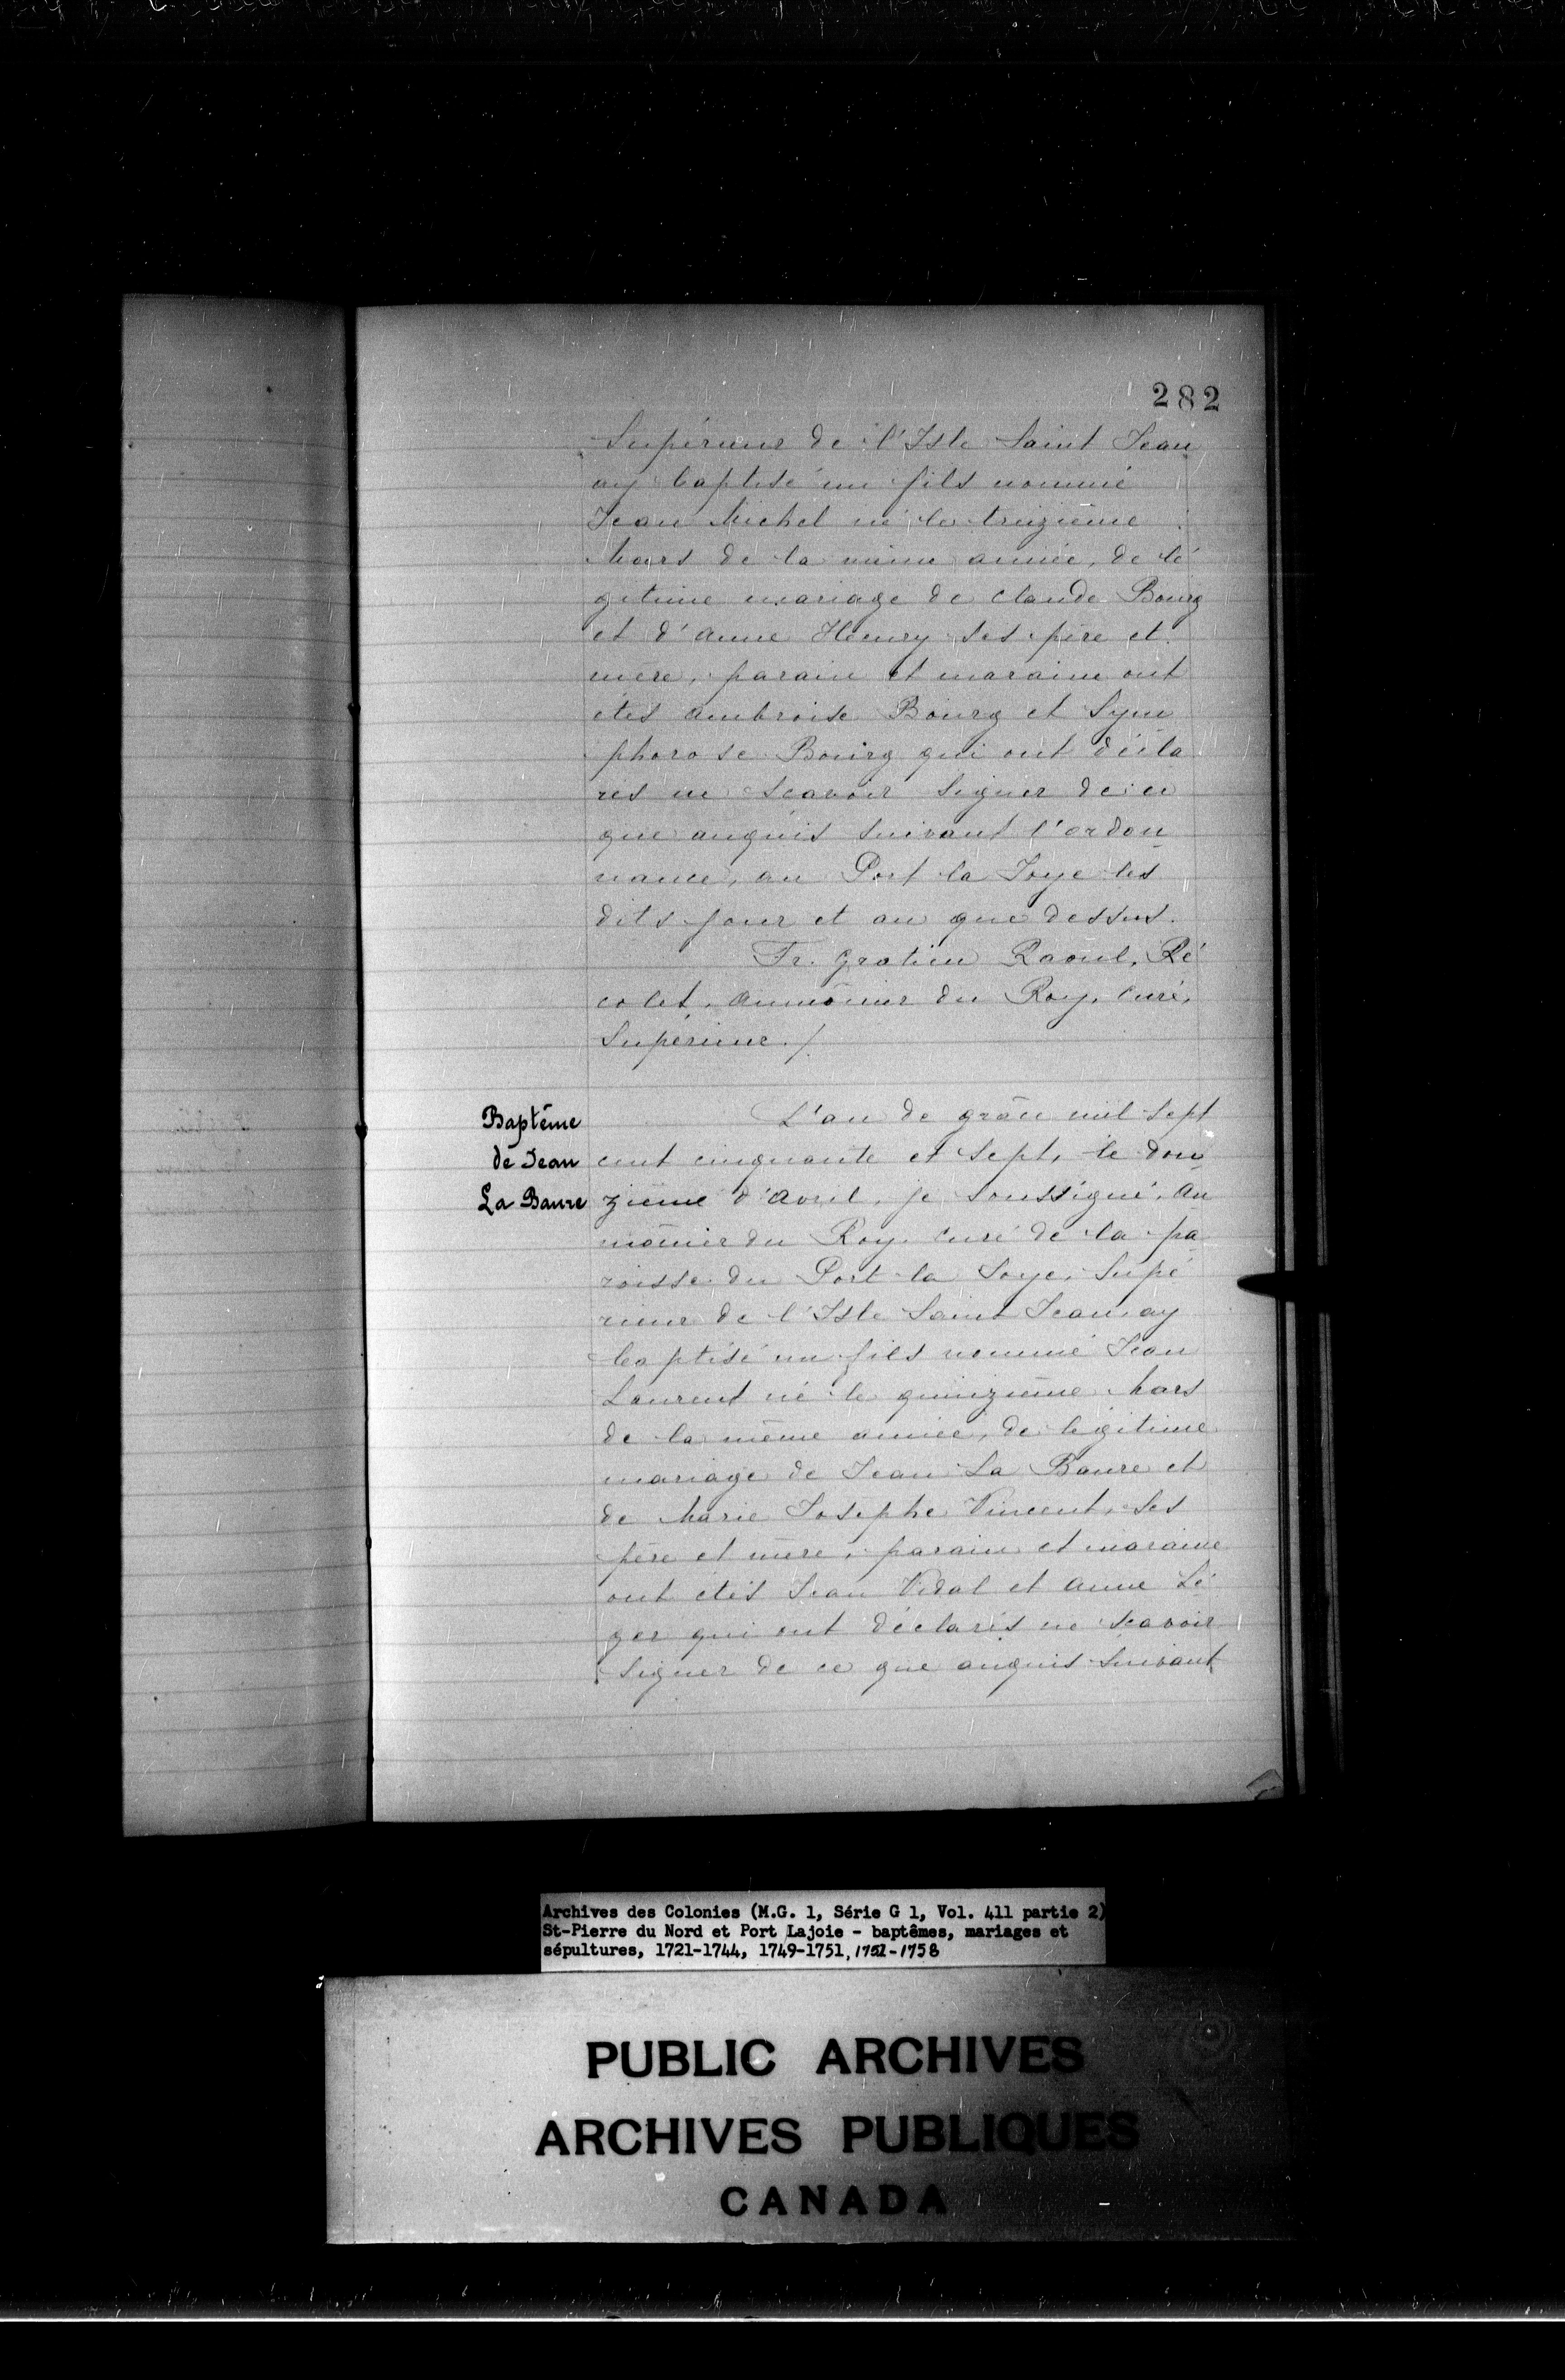 282
Supérieur de l'Isle Saint Jean
ay baptisé un fils nommé
Jean Michel né le treizième
Mars de la même année, de lé
gitime mariage de Claude Bourg
et d'Anne Henry ses père et
mère, parain et maraine ont
étés Ambroise Bourg et Sym
phorose Bourg qui ont décla
rés ne scavoir signer de ce
que anquis suivant l'ordon
nance, au Port la Joye les
dits jour et an que dessus.
Fr. Gratien Raoul, Ré
colet, aumônier du Roy, curé,
Supérieur./.
Baptême
de Jean
La Baure
L'an de grâce mil sept
cent cinquante et sept, le dou
zième d'Avril, je soussigné, au
mônier du Roy, curé de la pa
roisse du Port la Joye, Supé
rieur de l'Isle Saint Jean, ay
baptisé un fils nommé Jean
Laurent né le quinzième Mars
de la même année, de légitime
mariage de Jean La Baure et
de Marie Josephe Vincent, ses
père et mère, parain et maraine
ont étés Jean Vidal et Anne Lé
ger qui ont déclarés ne scavoir
signer de ce que anquis suivant
Archives des Colonies (M.G. 1, Série G 1, Vol. 411 partie 2)
St-Pierre du Nord et Port Lajoie - baptêmes, mariages et
sépultures, 1721-1744, 1749-1751, 1752-1758
PUBLIC ARCHIVES
ARCHIVES PUBLIQUES
CANADA